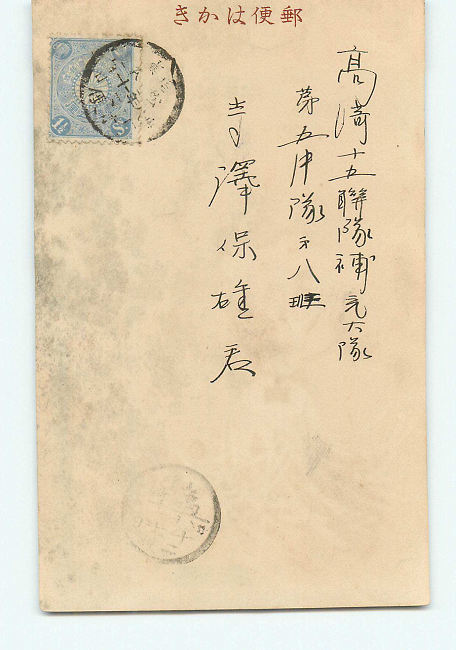 郵便はかき
高崎十五聯隊補充大隊
第五中隊第八班
寺澤保雄君
1½ Sn